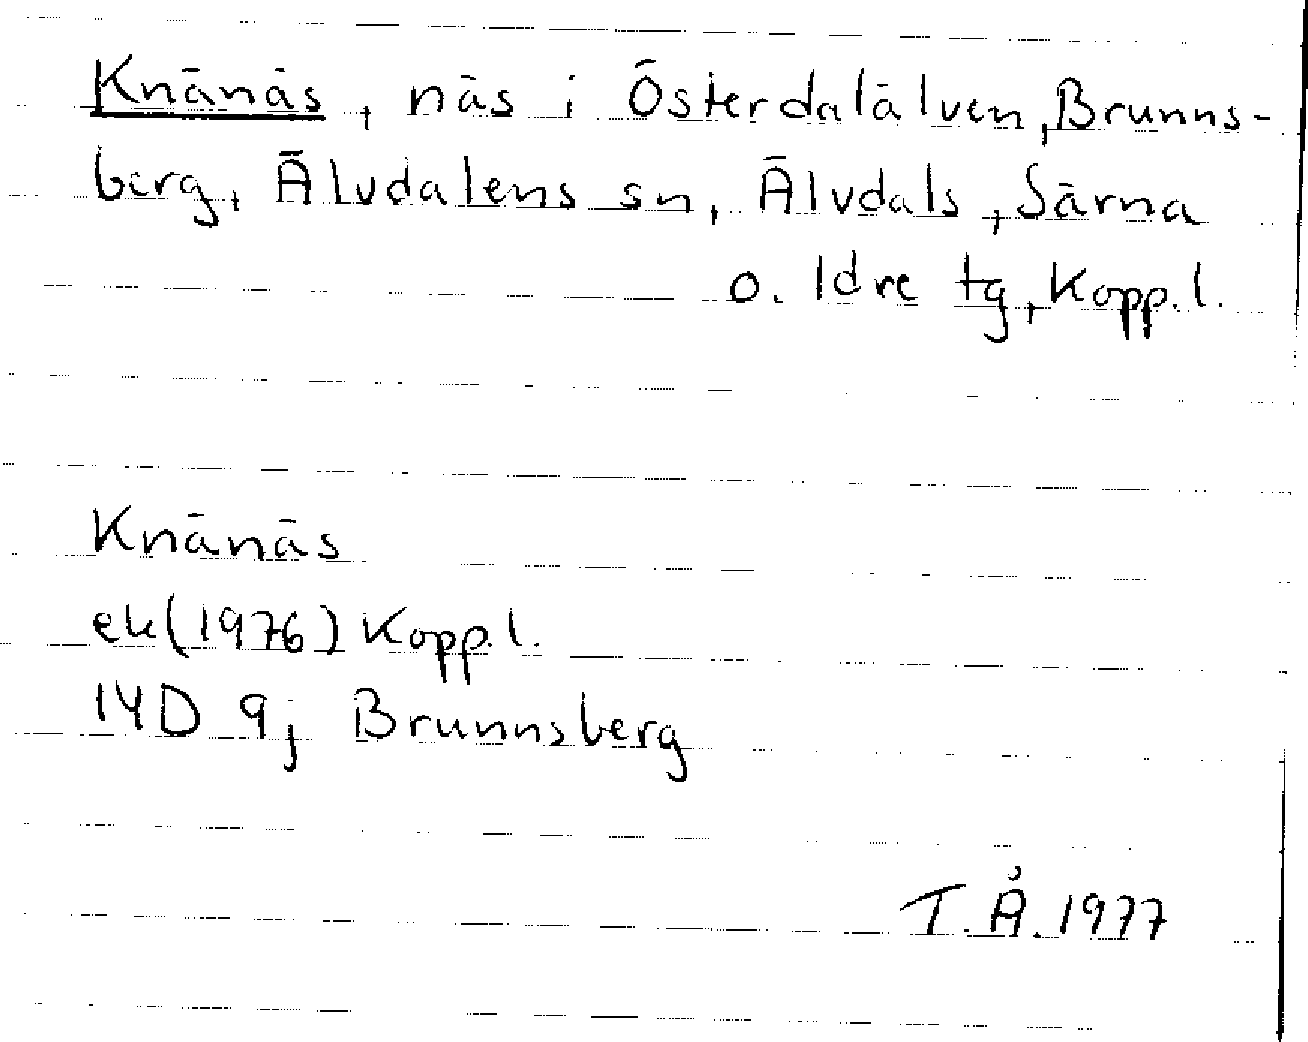 Knänäs, näs i Österdalälven, Brunns-
berg, Älvdalens sn, Älvdals, Särna
o. Idre tg, Kopp. l.
Knänäs
ek (1976) Kopp. l.
14D 9j Brunnsberg
T. Å. 1977